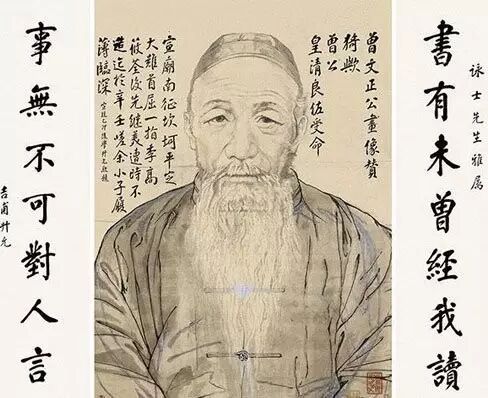 詠士先生雅屬
書有未曾經我讀
曾文正公畫像贊
猗歟
曾公
皇清良佐受命
宣廟南征坎坷平定
大難首屈一指李高
後先繼美遺時不
造迄於辛壬嗟余小子履
薄臨深
事無不可對人言
吉甫升允